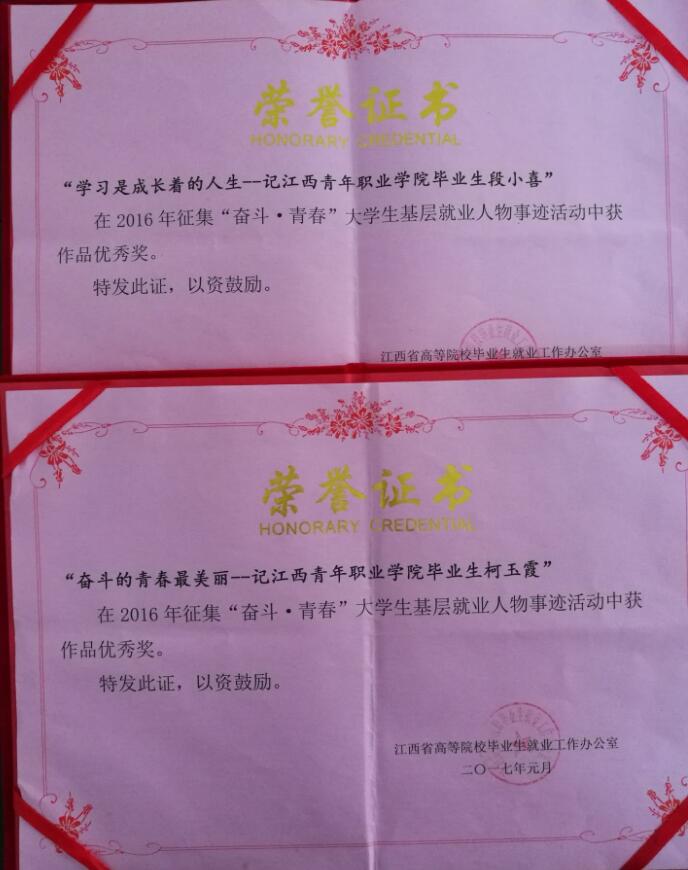 荣誉证书
HONORARY CREDENTIAL
“学习是成长着的人生--记江西青年职业学院毕业生段小喜”
在2016年征集“奋斗·青春”大学生基层就业人物事迹活动中获
作品优秀奖。
特发此证，以资鼓励。
江西省高等院校毕业生就业工作办公室
荣誉证书
HONORARY CREDENTIAL
“奋斗的青春最美丽--记江西青年职业学院毕业生柯玉霞”
在2016年征集“奋斗·青春”大学生基层就业人物事迹活动中获
作品优秀奖。
特发此证，以资鼓励。
江西省高等院校毕业生就业工作办公室
二〇一七年元月